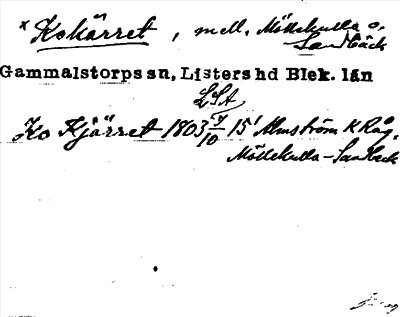 * Kokärret, mell. Möllekulla o.
Sandbäck
Gammalstorps sn, Listers hd Blek. län
LSA
Ko Kjärret 1803 5/10 15' Almström K Råg.
Möllekulla-Sandbeck